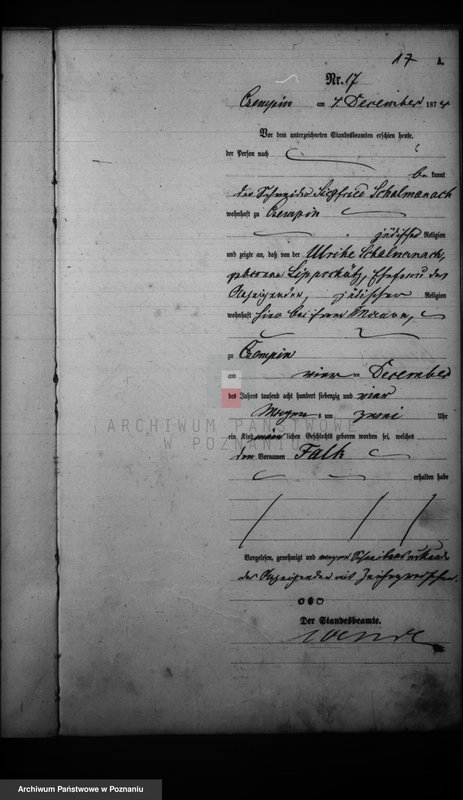 17 A.
Nr. 17
Czempin am 7 December 1874
Vor dem unterzeichneten Standesbeamten erschien heute,
der Person nach
be kannt
der Schneider Siegfried Schalmanach
wohnhaft zu Czempin
jüdischer Religion
und zeigte an, daß von der Ulrike Schalmanach,
geborene Lippschütz, Ehefrau des
Anzeigenden, jüdischer Religion
wohnhaft hier bei ihrem Manne,
zu Czempin
am vier December
des Jahres tausend acht hundert siebenzig und vier
Morgens um zwei Uhr
ein Kind männlichen Geschlechts geboren worden sei, welches
den Vornamen Falk
erhalten habe
ARCHIWUM PAŃSTWOWE
W POZNANIU
Vorgelesen, genehmigt und wegen Schreibensunkunde
des Anzeigenden mit
ooo
Der Standesbeamte.
Archiwum Państwowe w Poznaniu